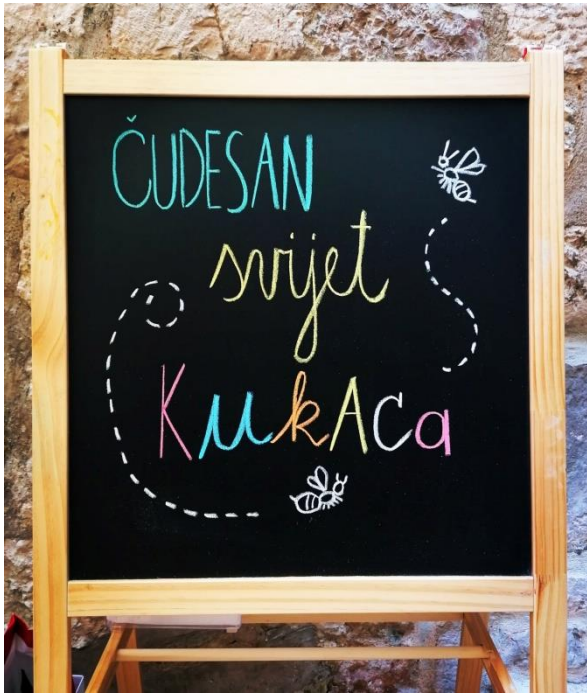 ČUDESAN
svijet
KukACa